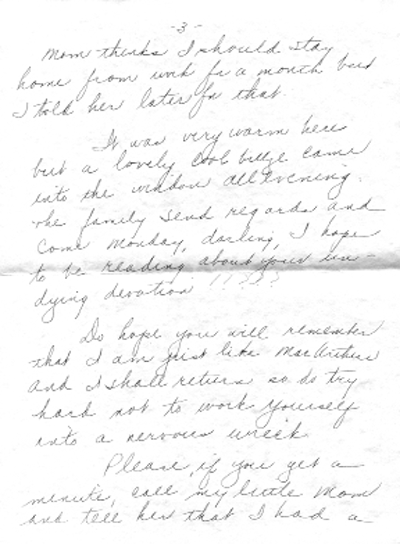 -3-
Mom thinks I should stay
home from work for a month but
I told her later for that.
It was very warm here
but a lovely cool breeze came
into the window all evening.
The family send regards and
come Monday, darling, I hope
to be reading about your un-
dying devotion !!!!!
Do hope you will remember
that I am just like MacArthur
and I shall return so do try
hard not to work yourself
into a nervous wreck
Please, if you get a
minute, call my little Mom
and tell her that I had a